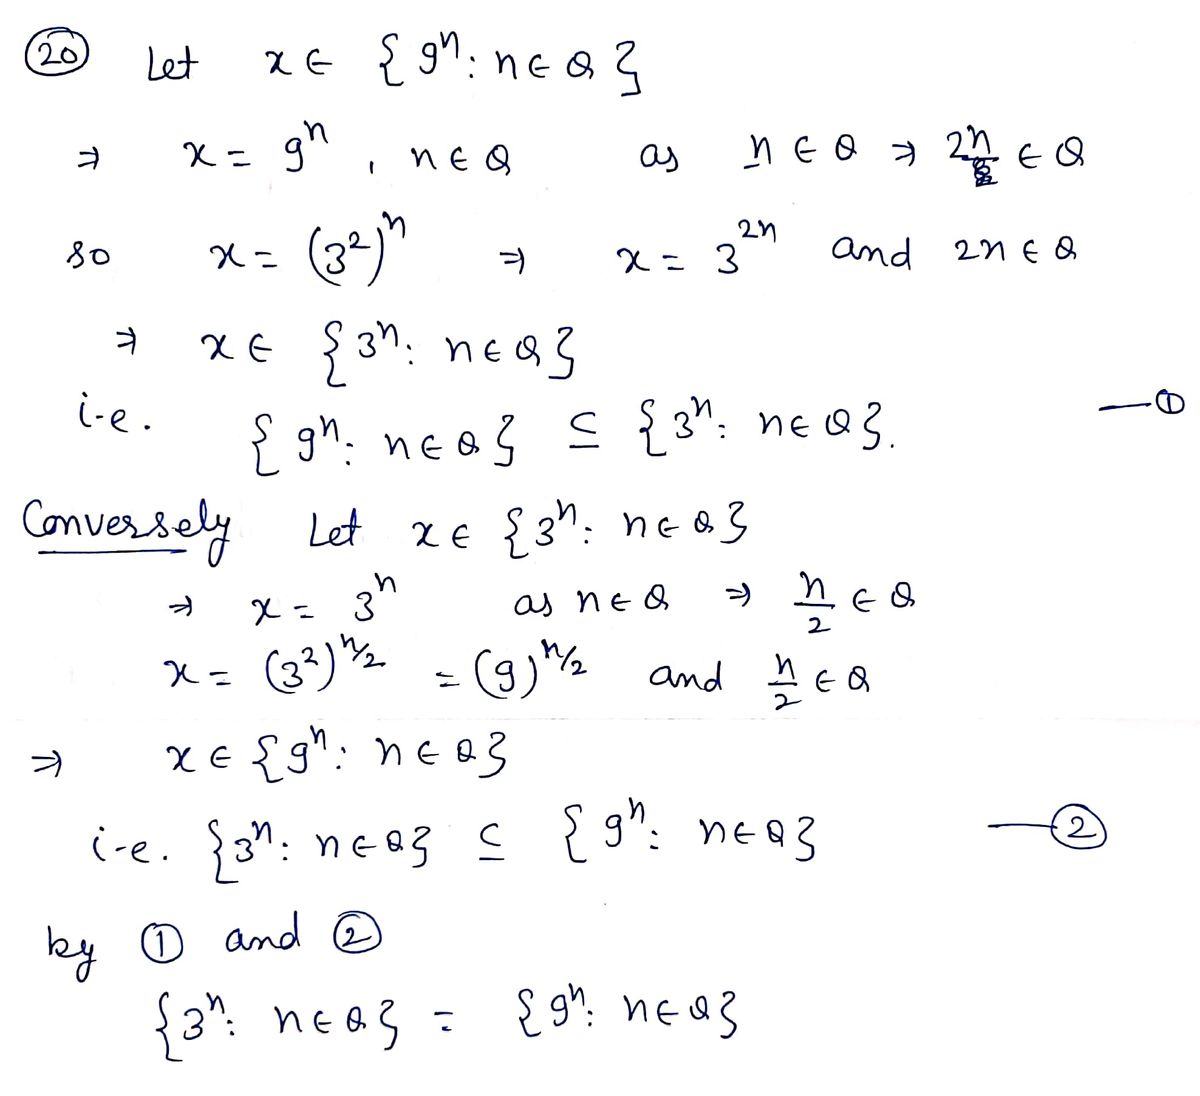 (20) Let x ∈ {9ⁿ : n ∈ Q}
⇒ x = 9ⁿ , n ∈ Q as n ∈ Q ⇒ 2n ∈ Q
so x = (3²)ⁿ ⇒ x = 3²ⁿ and 2n ∈ Q
⇒ x ∈ {3ⁿ : n ∈ Q}
i.e. {9ⁿ : n ∈ Q} ⊆ {3ⁿ : n ∈ Q}. —①
Conversely Let x ∈ {3ⁿ : n ∈ Q}
⇒ x = 3ⁿ as n ∈ Q ⇒ n/2 ∈ Q
x = (3²)^(n/2) = (9)^(n/2) and n/2 ∈ Q
⇒ x ∈ {9ⁿ : n ∈ Q}
i.e. {3ⁿ : n ∈ Q} ⊆ {9ⁿ : n ∈ Q} —②
by ① and ②
{3ⁿ : n ∈ Q} = {9ⁿ : n ∈ Q}